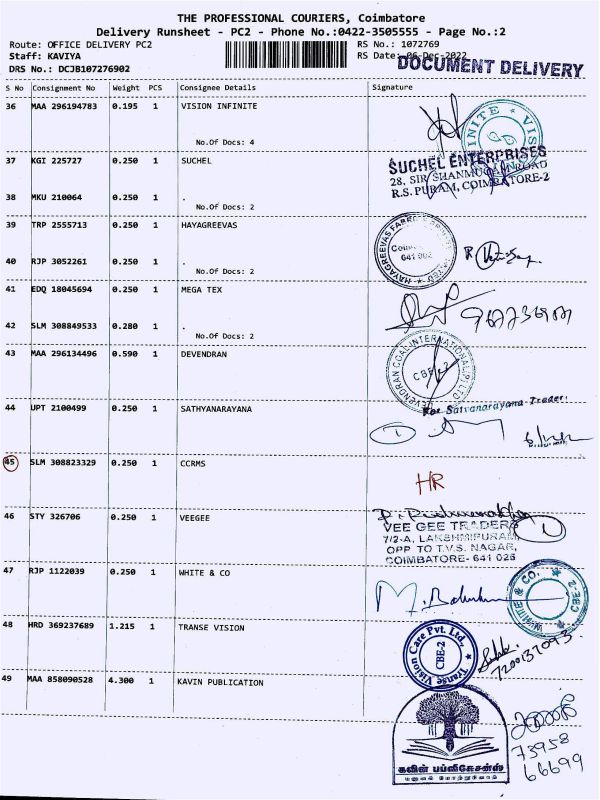 THE PROFESSIONAL COURIERS, Coimbatore
Delivery Runsheet - PC2 - Phone No.:0422-3505555 - Page No.:2
Route: OFFICE DELIVERY PC2
RS No.: 1072769
Staff: KAVIYA
RS Date: 06-Dec-2022
DRS No.: DCJB107276902
DOCUMENT DELIVERY
S No Consignment No Weight PCS Consignee Details Signature
36 MAA 296194783 0.195 1 VISION INFINITE
No.Of Docs: 4
37 KGI 225727 0.250 1 SUCHEL
SUCHEL ENTERPRISES
28, SIR SHANMUGAM ROAD
R.S. PURAM, COIMBATORE-2
38 MKU 210064 0.250 1 .
No.Of Docs: 2
39 TRP 2555713 0.250 1 HAYAGREEVAS
HAYAGREEVAS
641 002
40 RJP 3052261 0.250 1 .
No.Of Docs: 2
41 EDQ 18045694 0.250 1 MEGA TEX
42 SLM 308849533 0.280 1 .
No.Of Docs: 2
43 MAA 296134496 0.590 1 DEVENDRAN
DEVENDRAN COAL INTERNATIONAL (P) LTD
CBE-2
44 UPT 2100499 0.250 1 SATHYANARAYANA
For Satyanarayana Trader
1
45 SLM 308823329 0.250 1 CCRMS
HR
46 STY 326706 0.250 1 VEEGEE
VEE GEE TRADERS
7/2-A, LAKSHMIPURAM,
OPP TO T.V.S. NAGAR,
COIMBATORE- 641 025
1
47 RJP 1122039 0.250 1 WHITE & CO
WHITE & CO.
CBE-2
48 HRD 369237689 1.215 1 TRANSE VISION
Transe Vision Care Pvt. Ltd.,
CBE-2
7200137093
49 MAA 858090528 4.300 1 KAVIN PUBLICATION
கவின் பப்ளிகேசன்ஸ்
73958
66699